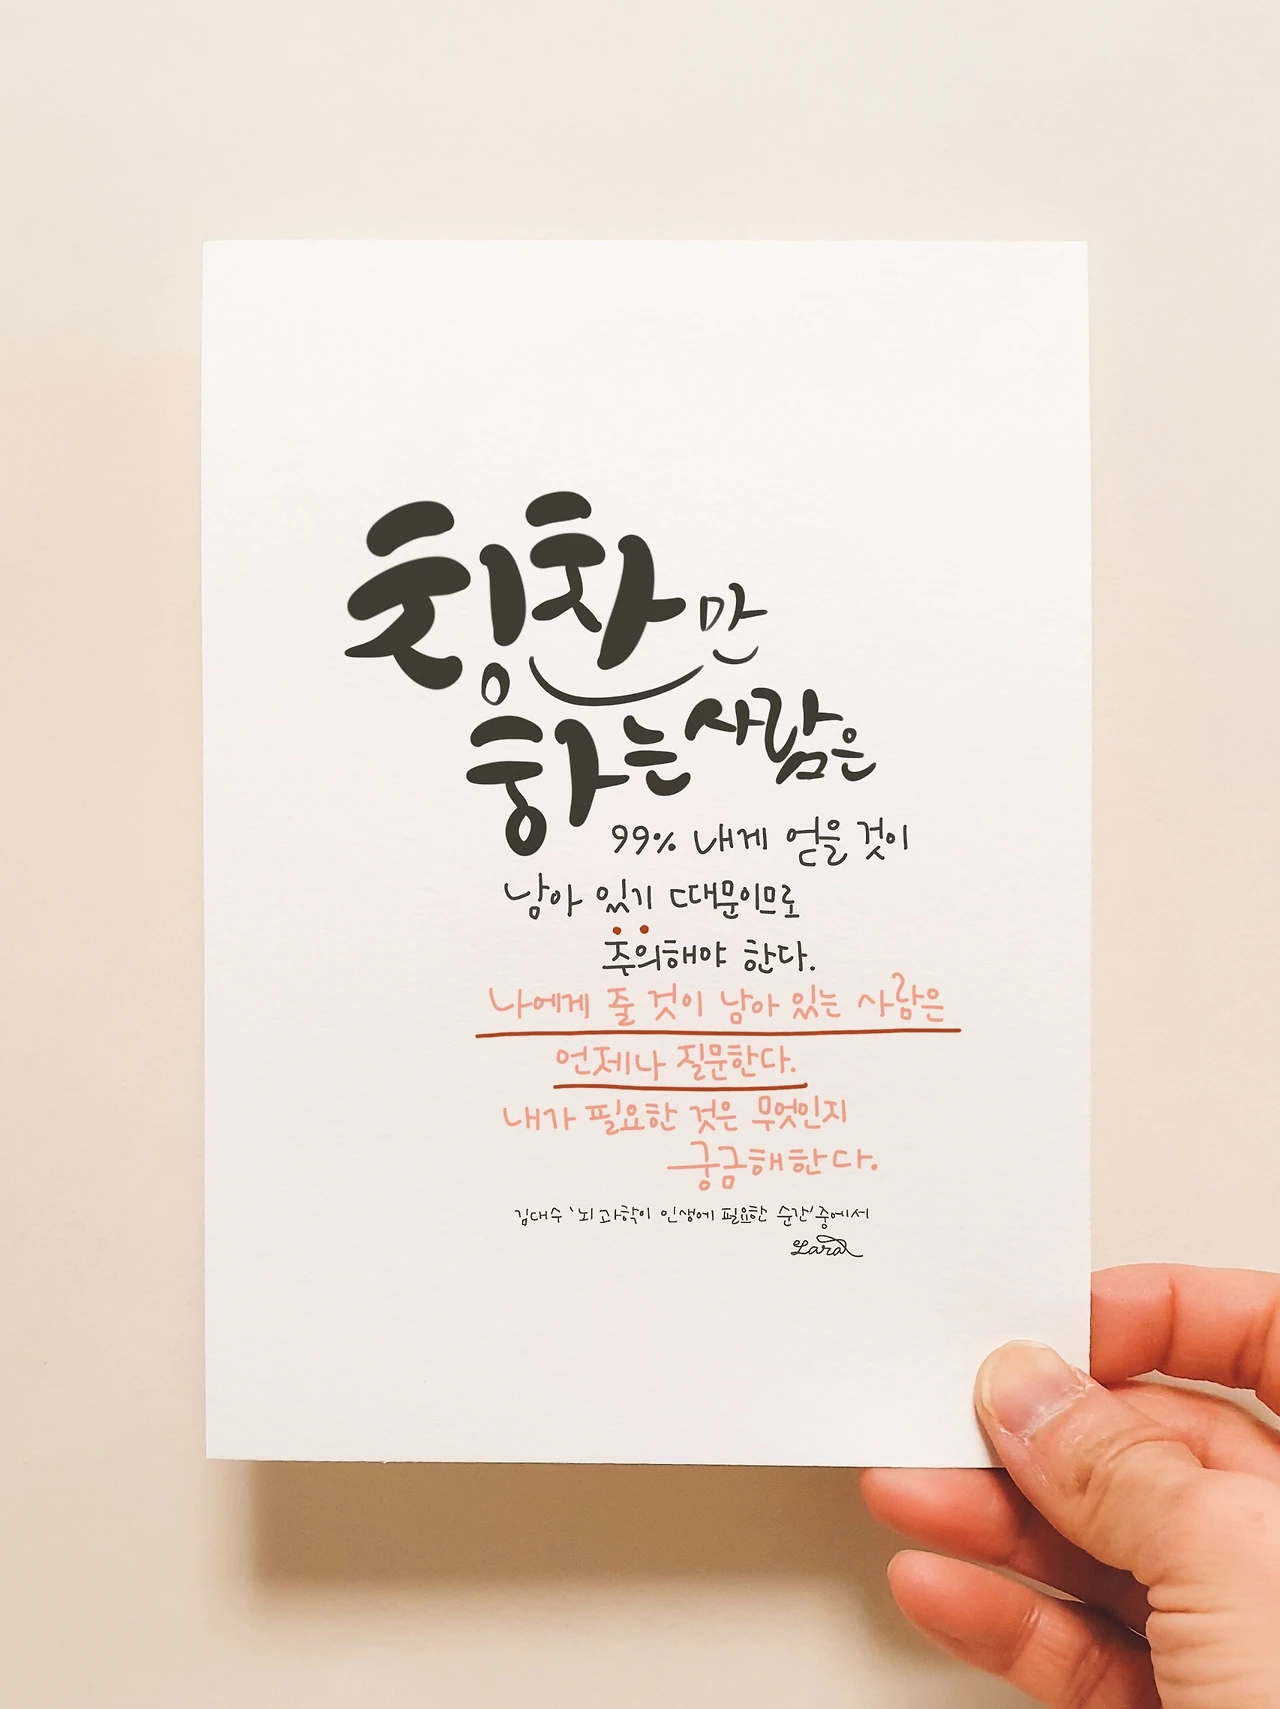 칭찬만
하는 사람은
99% 내게 얻을 것이
남아 있기 때문이므로
주의해야 한다.
나에게 줄 것이 남아 있는 사람은
언제나 질문한다.
내가 필요한 것은 무엇인지
궁금해한다.
김대수 '뇌 과학이 인생에 필요한 순간' 중에서
Lara